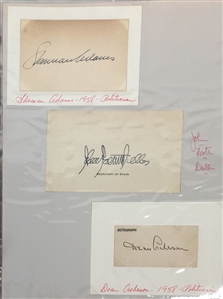 Sherman Adams
Sherman Adams - 1958 - Politician
John Foster Dulles
SECRETARY OF STATE
John
Foster
Dulles
AUTOGRAPH
Dean Acheson
Dean Acheson - 1958 - Politician